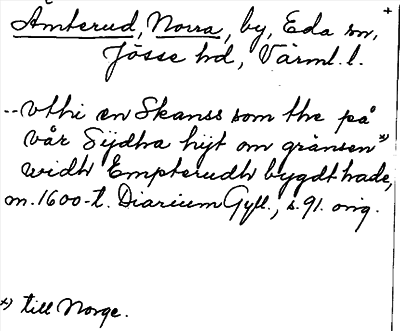 Åmterud, Norra, by, Eda sn,
Jösse hd, Värml. l.
-- vthi en Skanss som the på
vår Sijdha hijt om gränsen*)
widh Empterudh bygdt hade,
m. 1600-t. Diarium Gyll., s. 91. orig.
*) till Norge.